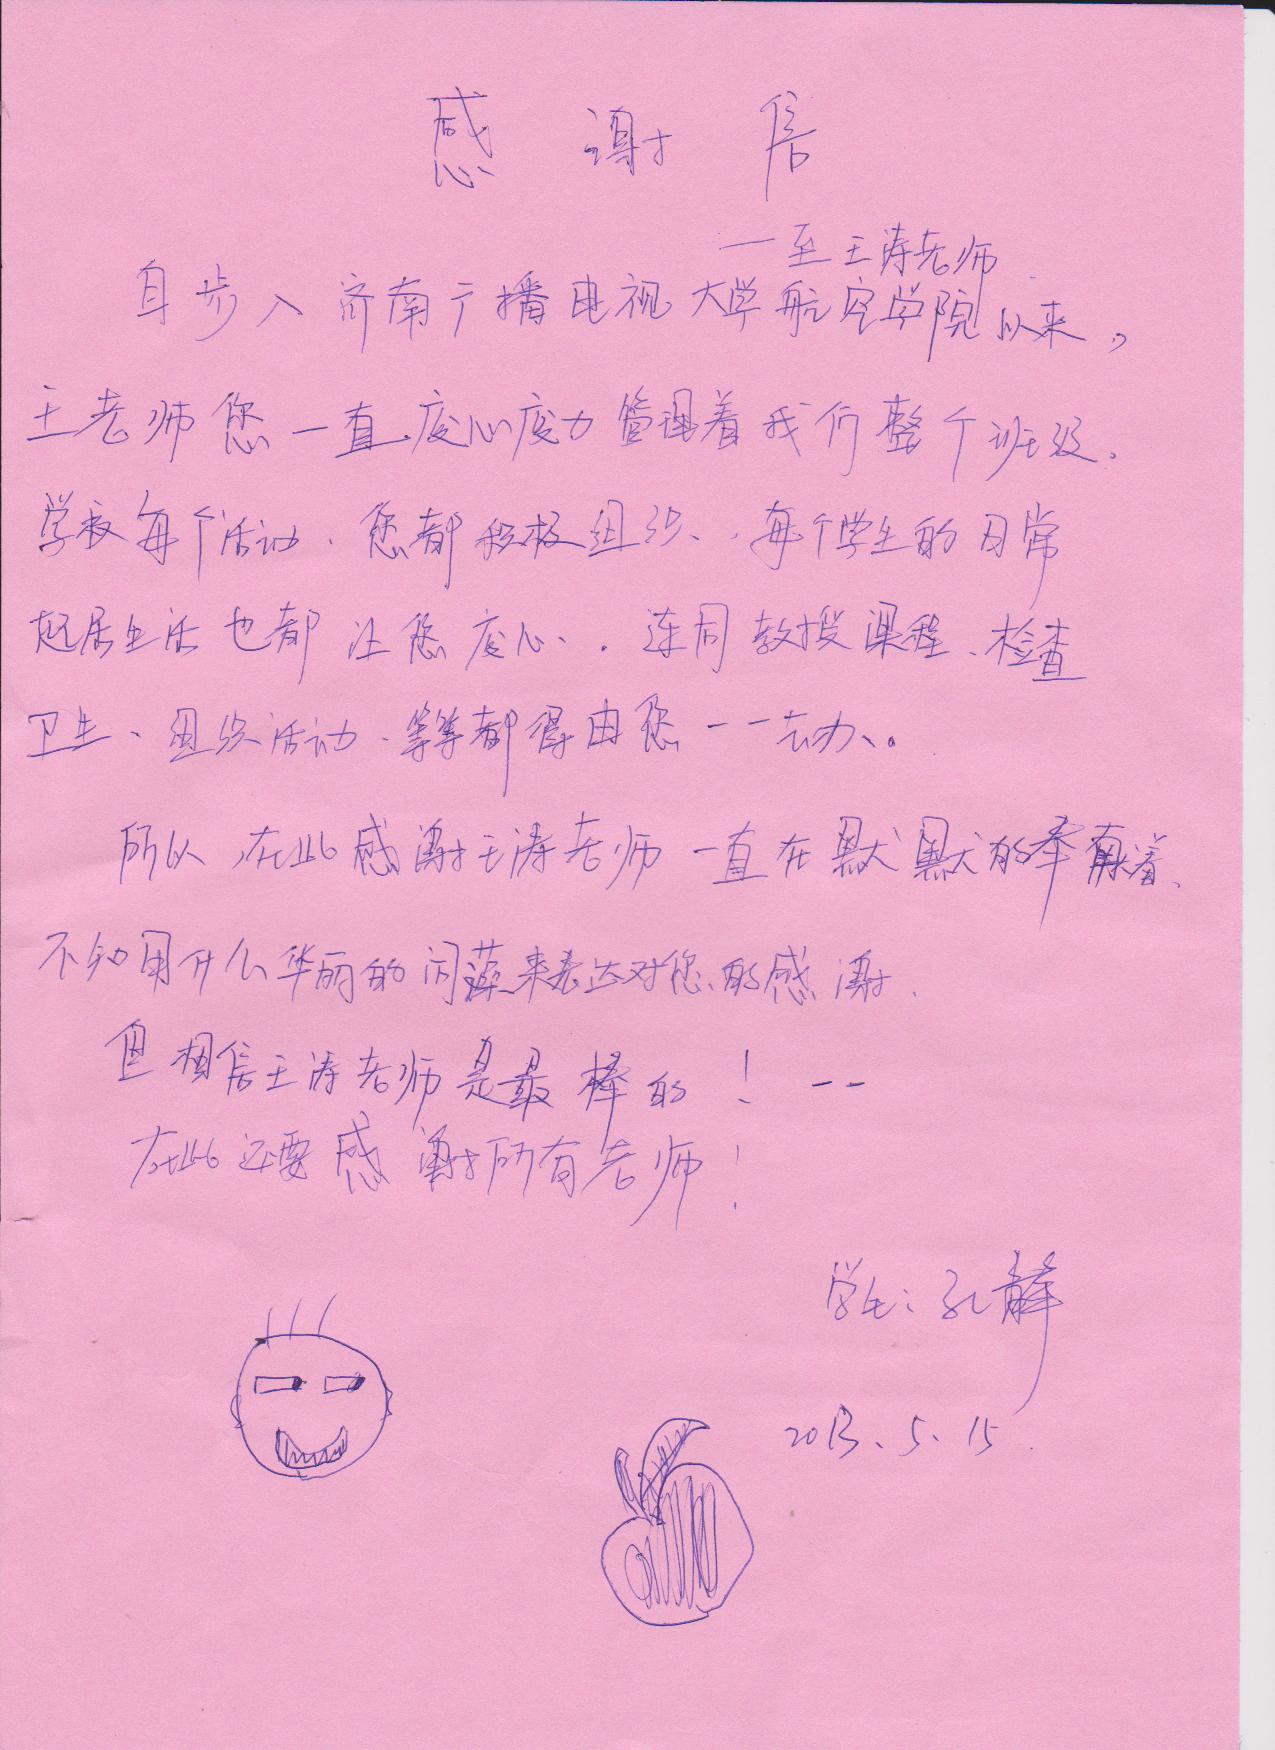 感谢信
一至王涛老师
自步入济南广播电视大学航空学院以来,
王老师您一直.废心废力管理着我们整个班级.
学校每个活动.您都积极组织、.每个学生的日常
起居生活也都让您废心、.连同教授课程、检查
卫生、组织活动、等等都得由您一一去办、。
所以,在此感谢王涛老师一直在默默的奉献着、
不知用什么华丽的词藻来表达对您的感谢.
但相信王涛老师是最棒的!--
在此还要感谢所有老师!
学生:孔
2013.5.15.